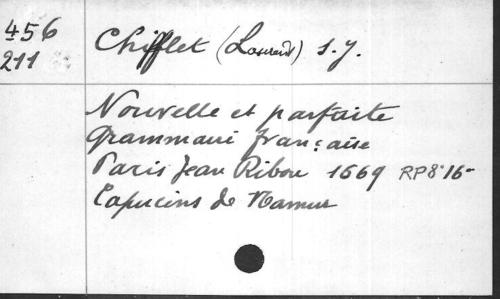 456
211
Chifflet (Laurent) S.J.
Nouvelle et parfaite
grammaire française
Paris Jean Ribou 1669 RP8°16-
Capucins de Namur